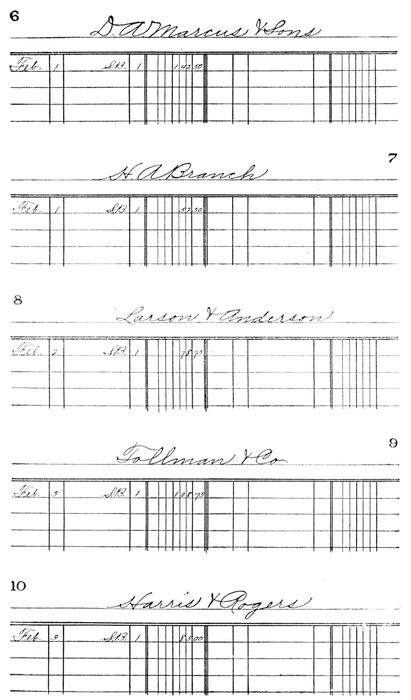 6
D. A. Marcus & Sons
Feb. 1 SB. 1 142.50
7
H. A. Branch
Feb. 1 SB. 1 52.50
8
Larson & Anderson
Feb. 2 SB. 1
9
Tollman & Co
Feb. SB. 1 108.75
10
Harris & Rogers
Feb. SB. 1 85.00